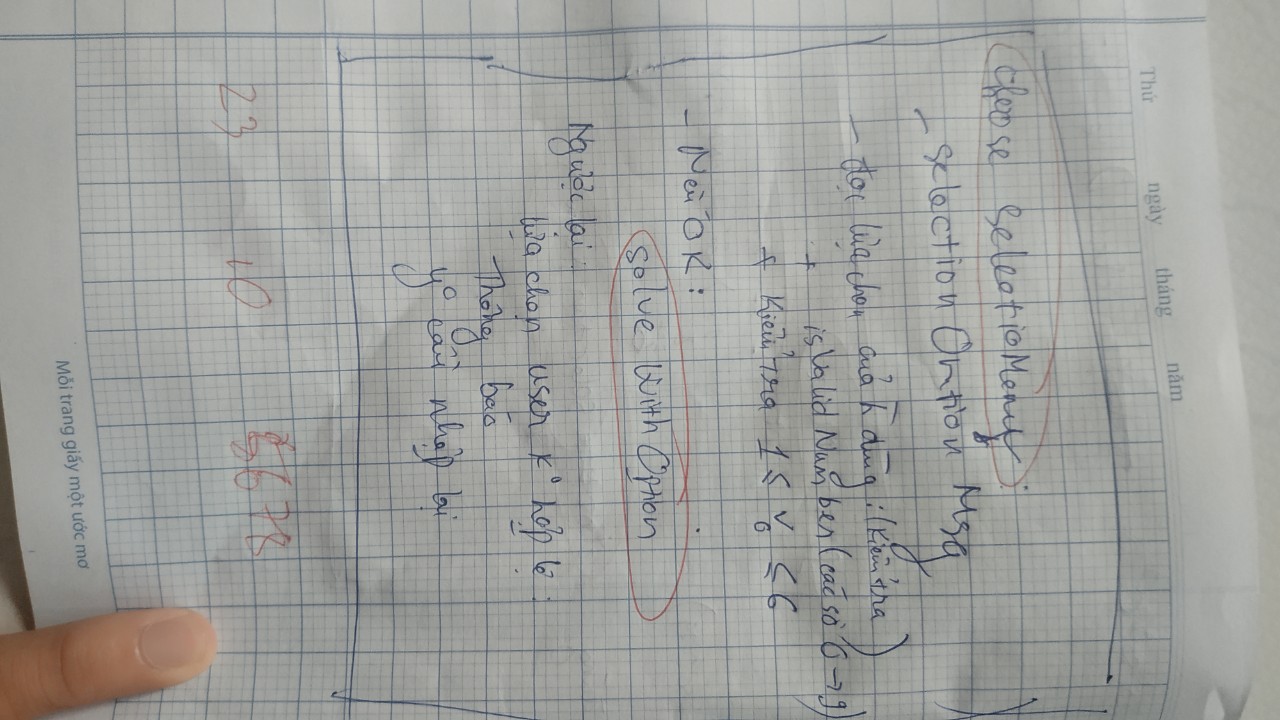 Thứ ngày tháng năm
Choose SelectioMenu:
- Selection Option Msg
- đọc lựa chọn của dùng: (Kiểm tra)
+ isValid Number (các số 0 → 9)
+ Kiểm tra 1 ≤ ≤ 6
- Nếu OK:
Solve With Option
Ngược lại:
lựa chọn user k° hợp lệ:
Thông báo
y° cầu nhập lại
23 10 5678
Mỗi trang giấy một ước mơ